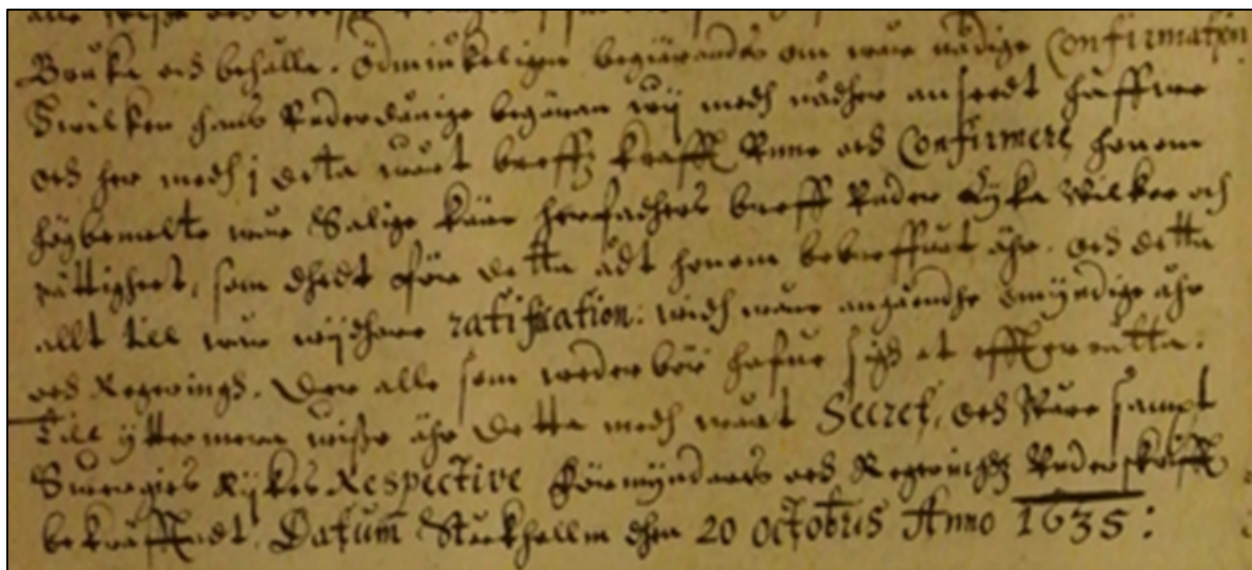 Bruka och behålla. Ödmiukeligen begärandes om wår nådige Confirmation
Hwilken hans Underdånige begäran wij medh nådher anseedt haffwe
och her medh j detta wårt breffz krafft Unne och Confirmere honom
högbemelte wår Salige käre herfadhers breff Under Lyka Wilkor och
rättigheet, som dhedt för detta ådt honom bebreffuat ähr. och detta
allt till wår wijdhare ratification: widh wåre angåendhe Myndige åhr
och Regerings. Der alle som wederbör hafue sigh at effterrätta.
Till yttermera wisso ähr detta medh wårt Secret, och Wåre sampt
Swerigies Rijkes Respective Förmyndares och Regeringhz Underskrifft
bekräfftadt. Datum Stockholm dhen 20 Octobris Anno 1635: